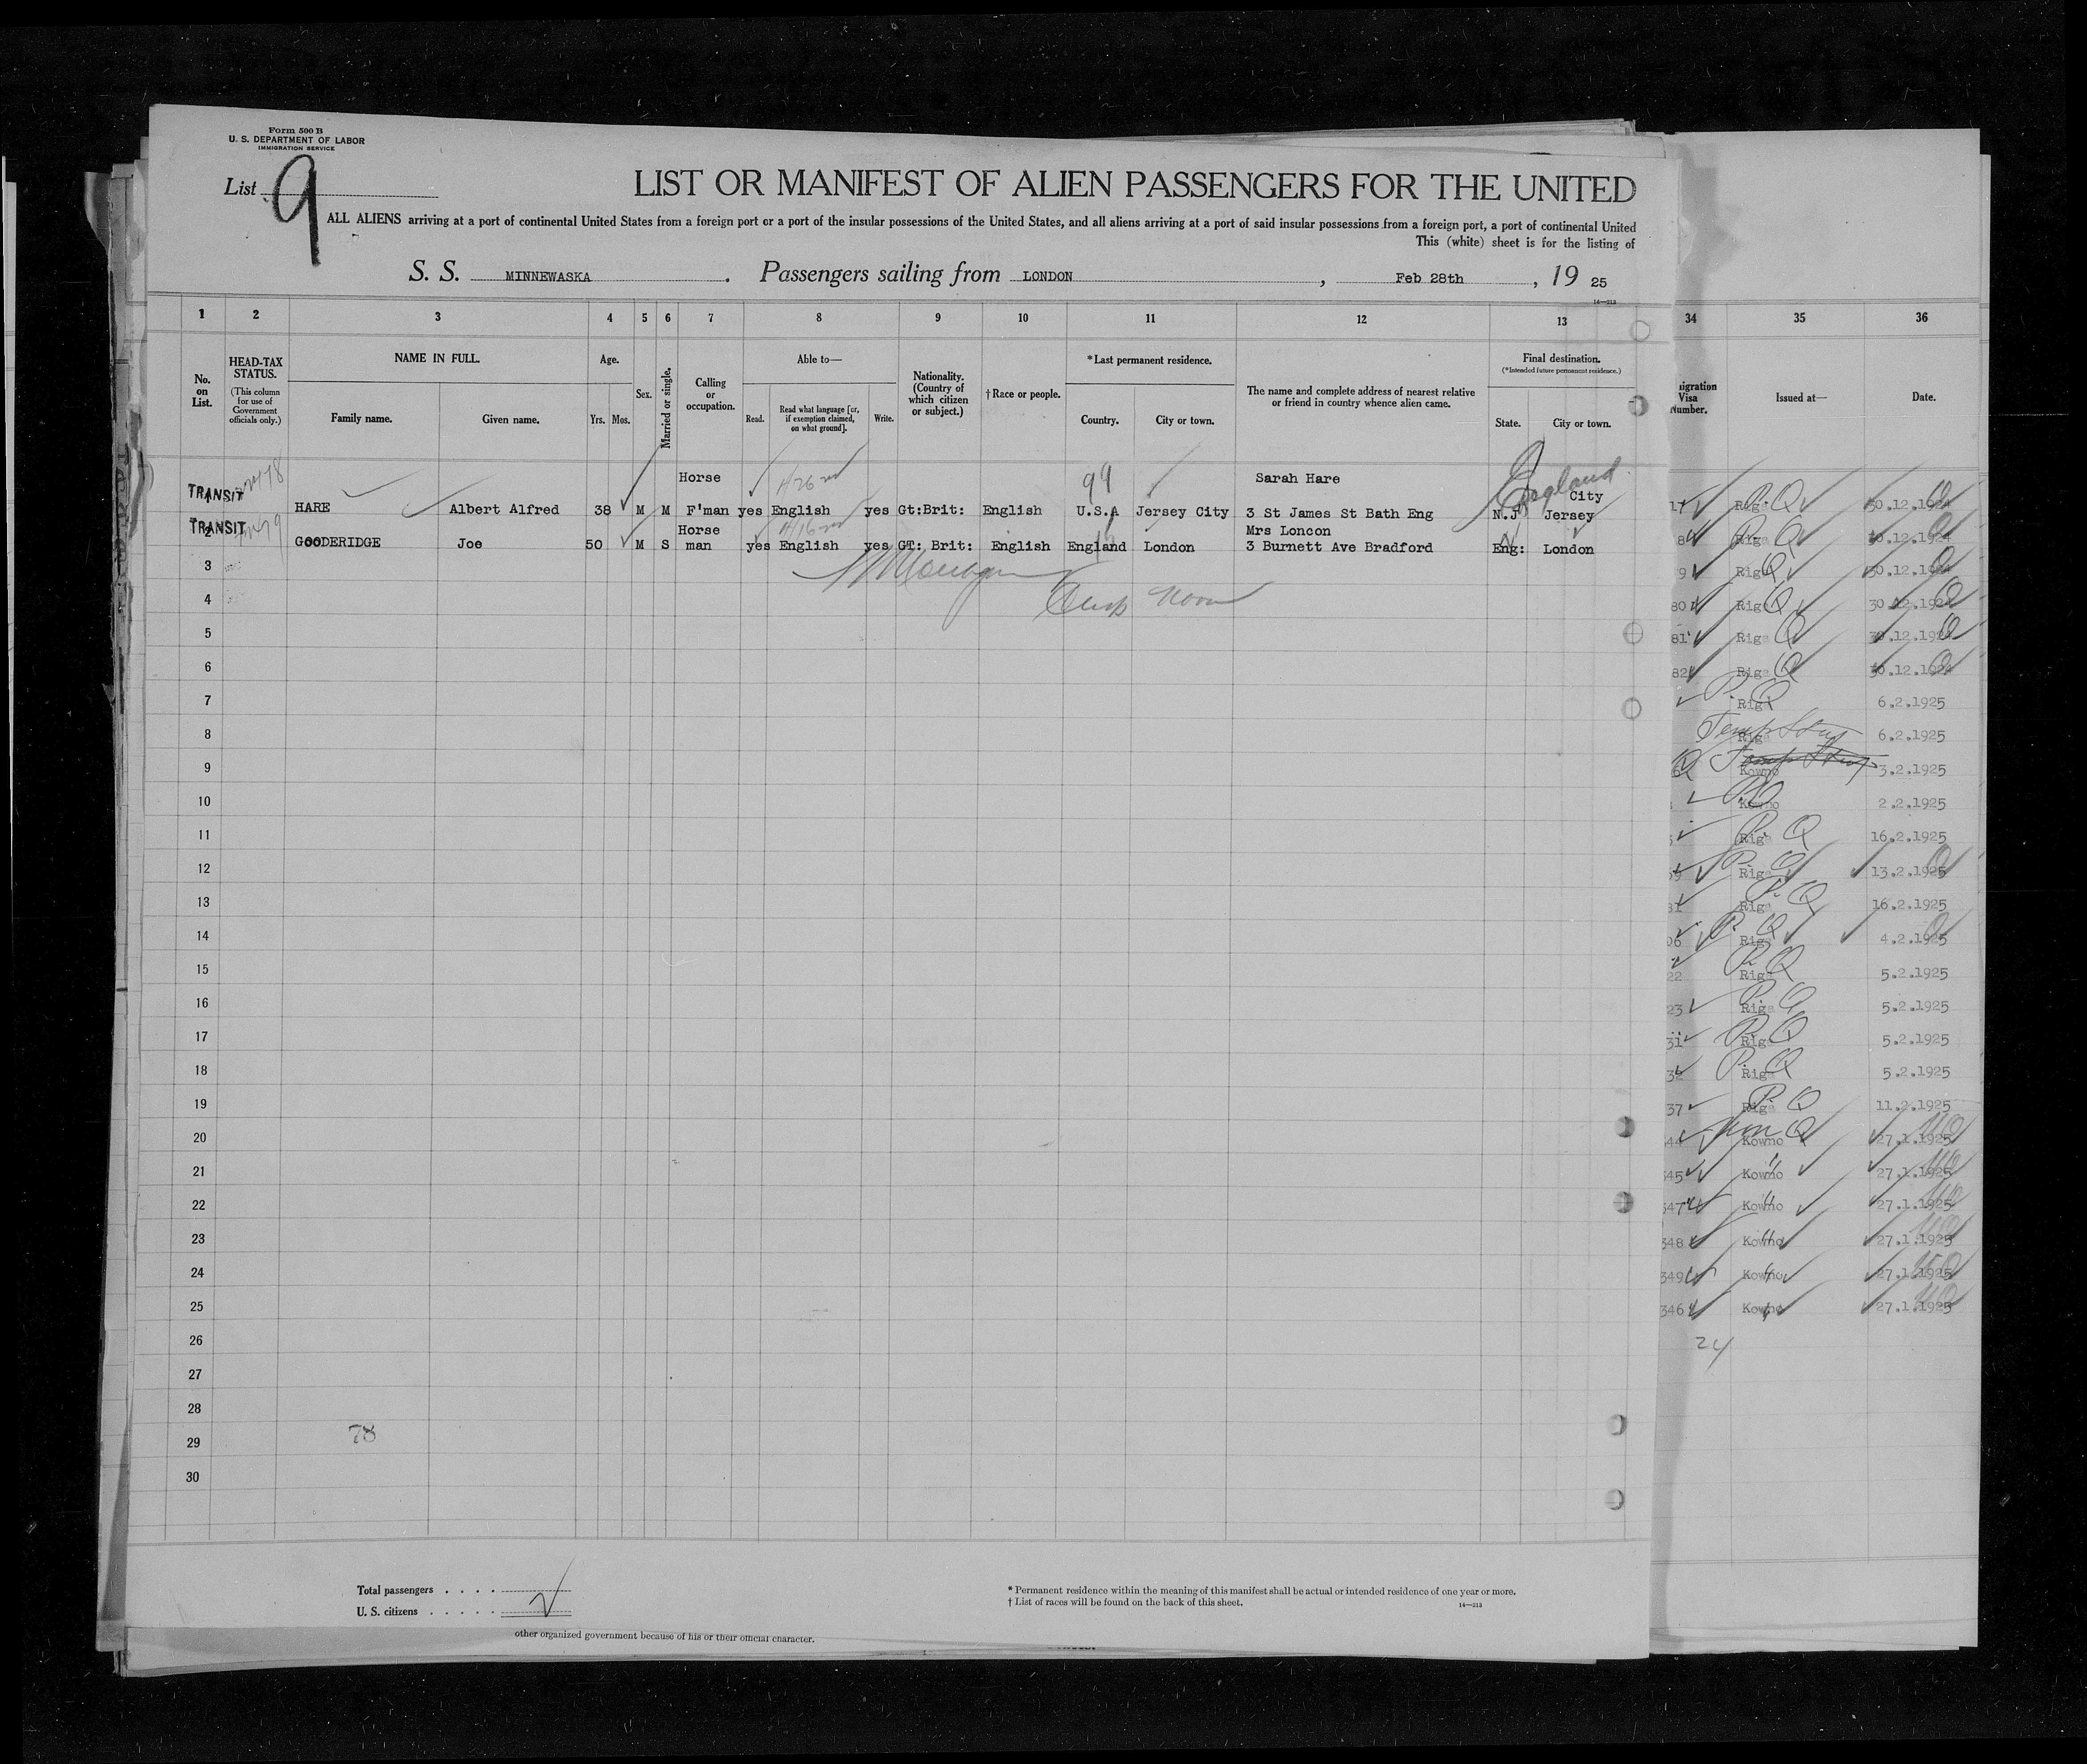 Form 500 B
U. S. DEPARTMENT OF LABOR
IMMIGRATION SERVICE
List 9
LIST OR MANIFEST OF ALIEN PASSENGERS FOR THE UNITED
ALL ALIENS arriving at a port of continental United States from a foreign port or a port of the insular possessions of the United States, and all aliens arriving at a port of said insular possessions from a foreign port, a port of continental United
This (white) sheet is for the listing of
S. S. MINNEWASKA . Passengers sailing from LONDON , Feb 28th , 19 25
14—213
1 2 3 4 5 6 7 8 9 10 11 12 13 34 35 36
No. on List.
HEAD-TAX STATUS.
(This column for use of Government officials only.)
NAME IN FULL.
Family name. Given name.
Age.
Yrs. Mos.
Sex.
Married or single.
Calling or occupation.
Able to—
Read. Read what language [or, if exemption claimed, on what ground]. Write.
Nationality. (Country of which citizen or subject.)
†Race or people.
*Last permanent residence.
Country. City or town.
The name and complete address of nearest relative or friend in country whence alien came.
Final destination.
(*Intended future permanent residence.)
State. City or town.
igration Visa Number.
Issued at—
Date.
TRANSIT
1 HARE Albert Alfred 38 M M Horse F'man yes English yes Gt:Brit: English U.S.A Jersey City Sarah Hare 3 St James St Bath Eng N.J Jersey City
99
England
TRANSIT
2 GOODERIDGE Joe 50 M S Horse man yes English yes GT: Brit: English England London Mrs Loncon 3 Burnett Ave Bradford Eng: London
3
4
5
6
7
8
9
10
11
12
13
14
15
16
17
18
19
20
21
22
23
24
25
26
27
28
29
30
78
Riga 30.12.1924
Riga 30.12.1924
Riga 30.12.1924
80 Riga 30.12.1924
81 Riga 30.12.1924
82 Riga 30.12.1924
Riga 6.2.1925
Riga 6.2.1925
Kowno 3.2.1925
Kowno 2.2.1925
Riga 16.2.1925
Riga 13.2.1925
Riga 16.2.1925
06 Riga 4.2.1925
22 Riga 5.2.1925
23 Riga 5.2.1925
31 Riga 5.2.1925
32 Riga 5.2.1925
37 Riga 11.2.1925
44 Kowno 27.1.1925
345 Kowno 27.1.1925
347 Kowno 27.1.1925
348 Kowno 27.1.1925
349 Kowno 27.1.1925
346 Kowno 27.1.1925
24
Total passengers . . . .
U. S. citizens . . . . .
* Permanent residence within the meaning of this manifest shall be actual or intended residence of one year or more.
† List of races will be found on the back of this sheet.
14—213
other organized government because of his or their official character.